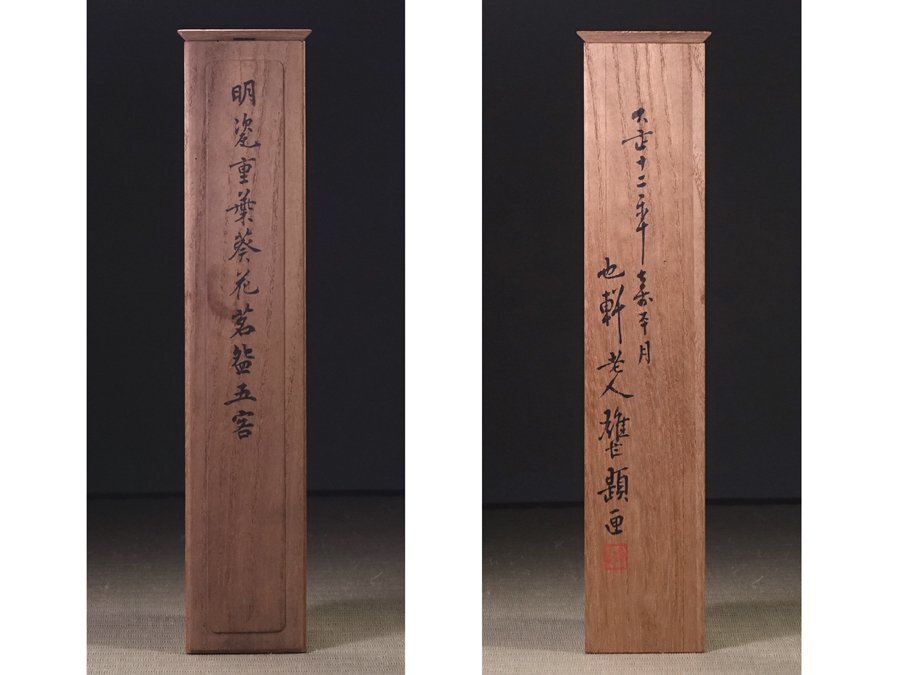 明瓷重葉葵花茗盌五客
大正十二年嘉平月
也軒老人雄 題画